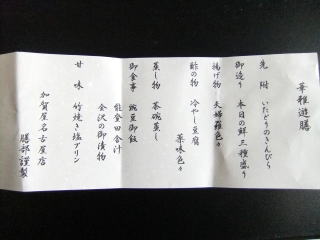 華雅遊膳
先附 いたどりのきんぴら
御造り 本日の鮮三種盛り
揚げ物 天婦羅色々
酢の物 冷やし豆腐
薬味色々
蒸し物 茶碗蒸し
御食事 豌豆御飯
能登田舎汁
金沢の御漬物
甘味 竹焼き塩プリン
加賀屋名古屋店
膳部謹製